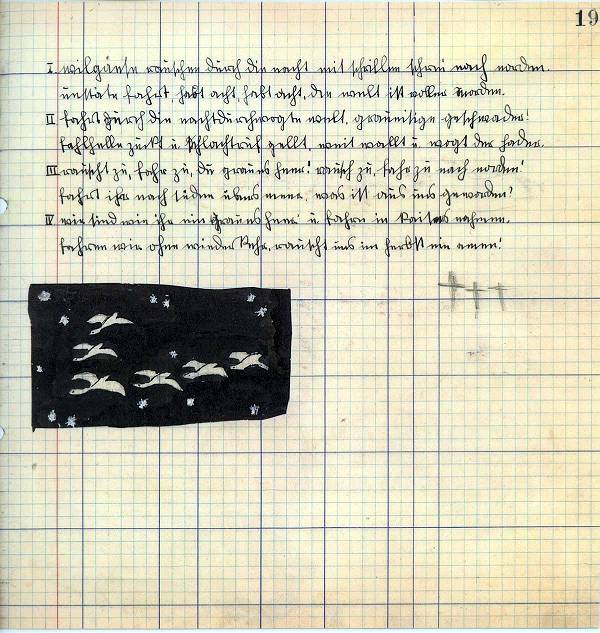 19
I. wilgänse rauschen durch die nacht mit schrillen schrei nach norden.
unstäte fahrt, habt acht, habt acht, die welt ist voller morden.
II fahrt durch die nachtdurchwogte welt, graureisige geschwader!
fahlhelle zuckt u. schlachtruf gellt, weit wallt u. wogt der hader.
III rauscht zu, fahr zu, du graues heer! rausch zu, fahr zu nach norden!
fahrt ihr nach süden übers meer, was ist aus uns geworden?
IV wir sind wie ihr ein graues heer u. fahrn in kaisers nahmen,
fahren wir ohne wieder kehr, rauscht uns im herbst ein amen!